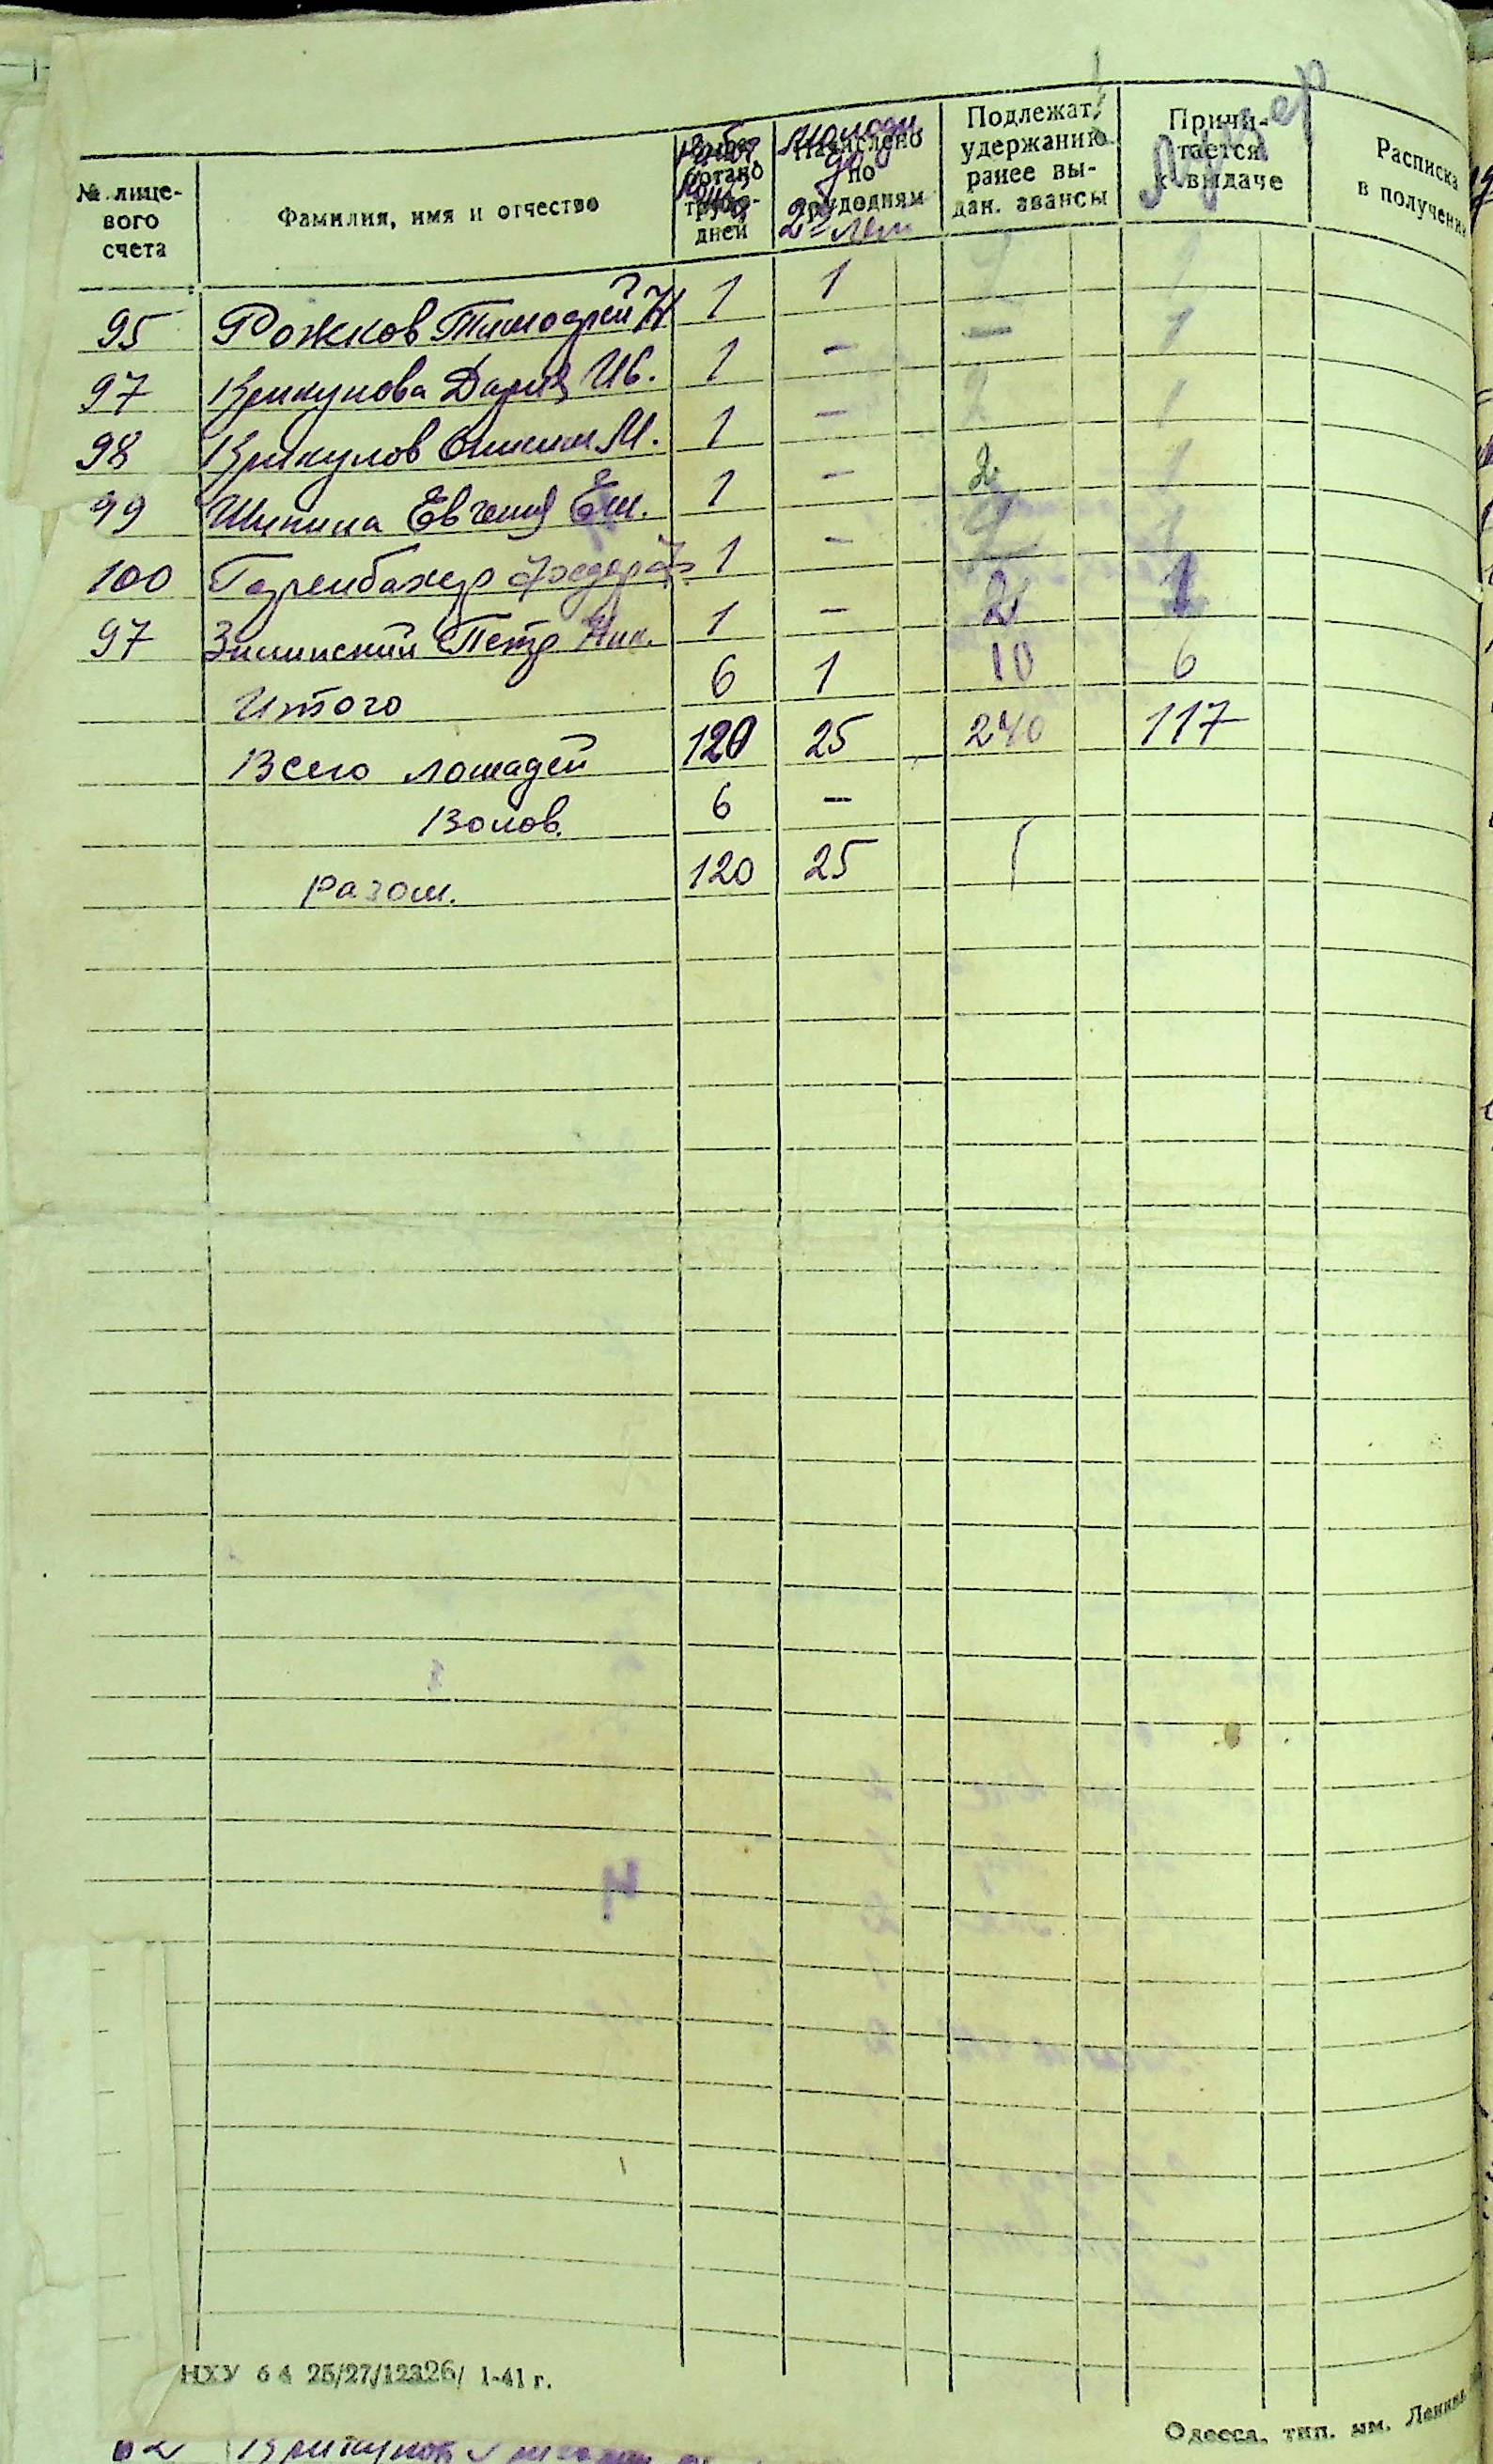 № лице-
вого
счета
Фамилия, имя и отчество
дней
молодн.
до
Начислено
по
трудодням
2х лет
Подлежат
удержанию
ранее вы-
дан. авансы
Причи-
тается
к выдаче
Расписка
в получени
95 Рожков Тимофей Н 1 1
97 Крикунова Дария Ив. 1 – – 1
98 Крикунов М. 1 – 2 1
99 Шипина Евгения Ем. 1 – 2 1
100 Федор 1 –
97 Зилинский Петр Ник. 1 – 2 1
Итого 6 1 10 6
Всего лошадей 120 25 240 117
Волов. 6 –
разом. 120 25
НХУ 64 25/27/12326/ 1-41 г.
Одесса, тип. им. Ленина